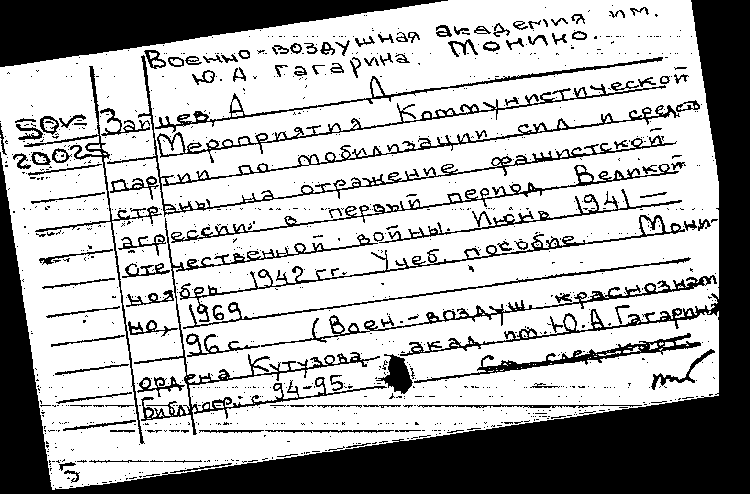 Военно-воздушная академия им.
Ю. А. Гагарина. Монино.
Sov= Зайцев, А Д
20025 Мероприятия Коммунистической
партии по мобилизации сил и средств
страны на отражение фашистской
агрессии в первый период Великой
отечественной войны. Июнь 1941 —
ноябрь 1942 гг. Учеб. пособие. Мони-
но, 1969.
96 с. (Воен.-воздуш. краснознам
ордена Кутузова акад. им. Ю.А. Гагарина)
Библиогр. с 94-95. См. след. карт.
5